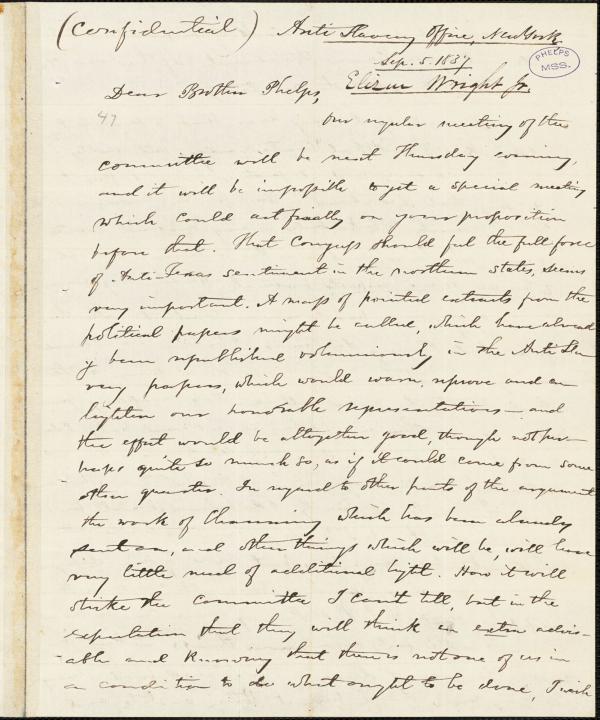 (Confidential) Anti Slavery Office, New York,
Sep. 5. 1837
PHELPS
MSS.
Dear Brother Phelps, Elizur Wright Jr.
47
our regular meeting of the
committee will be next Thursday evening,
and it will be impossible to get a special meeting
which could act finally on your proposition
before that. That Congress should feel the full force
of Anti-Texas sentiment in the northern states, seems
very important. A mass of pointed extracts from the
political papers might be culled, which have alread
y been republished voluminously in the Anti Sla
very papers, which would warn, reprove and en
lighten our honorable representatives—and
the effect would be altogether good, though not per-
haps quite so much so, as if it could come from some
other quarter. In regard to other parts of the argument
the work of Channing which has been already
sent on, and other things which will be, will have
very little need of additional light. How it will
strike the committee I can't tell, but in the
expectation that they will think an extra advis-
able and knowing that there is not one of us in
a condition to do what ought to be done, I wish